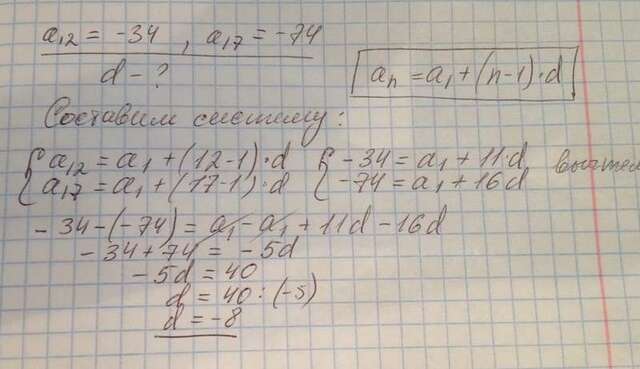 a₁₂ = -34 , a₁₇ = -74
d - ?
aₙ = a₁ + (n-1)·d
Составим систему:
{ a₁₂ = a₁ + (12-1)·d { -34 = a₁ + 11·d
a₁₇ = a₁ + (17-1)·d -74 = a₁ + 16d
-34-(-74) = a₁ - a₁ + 11d - 16d
-34+74 = -5d
-5d = 40
d = 40 : (-5)
d = -8